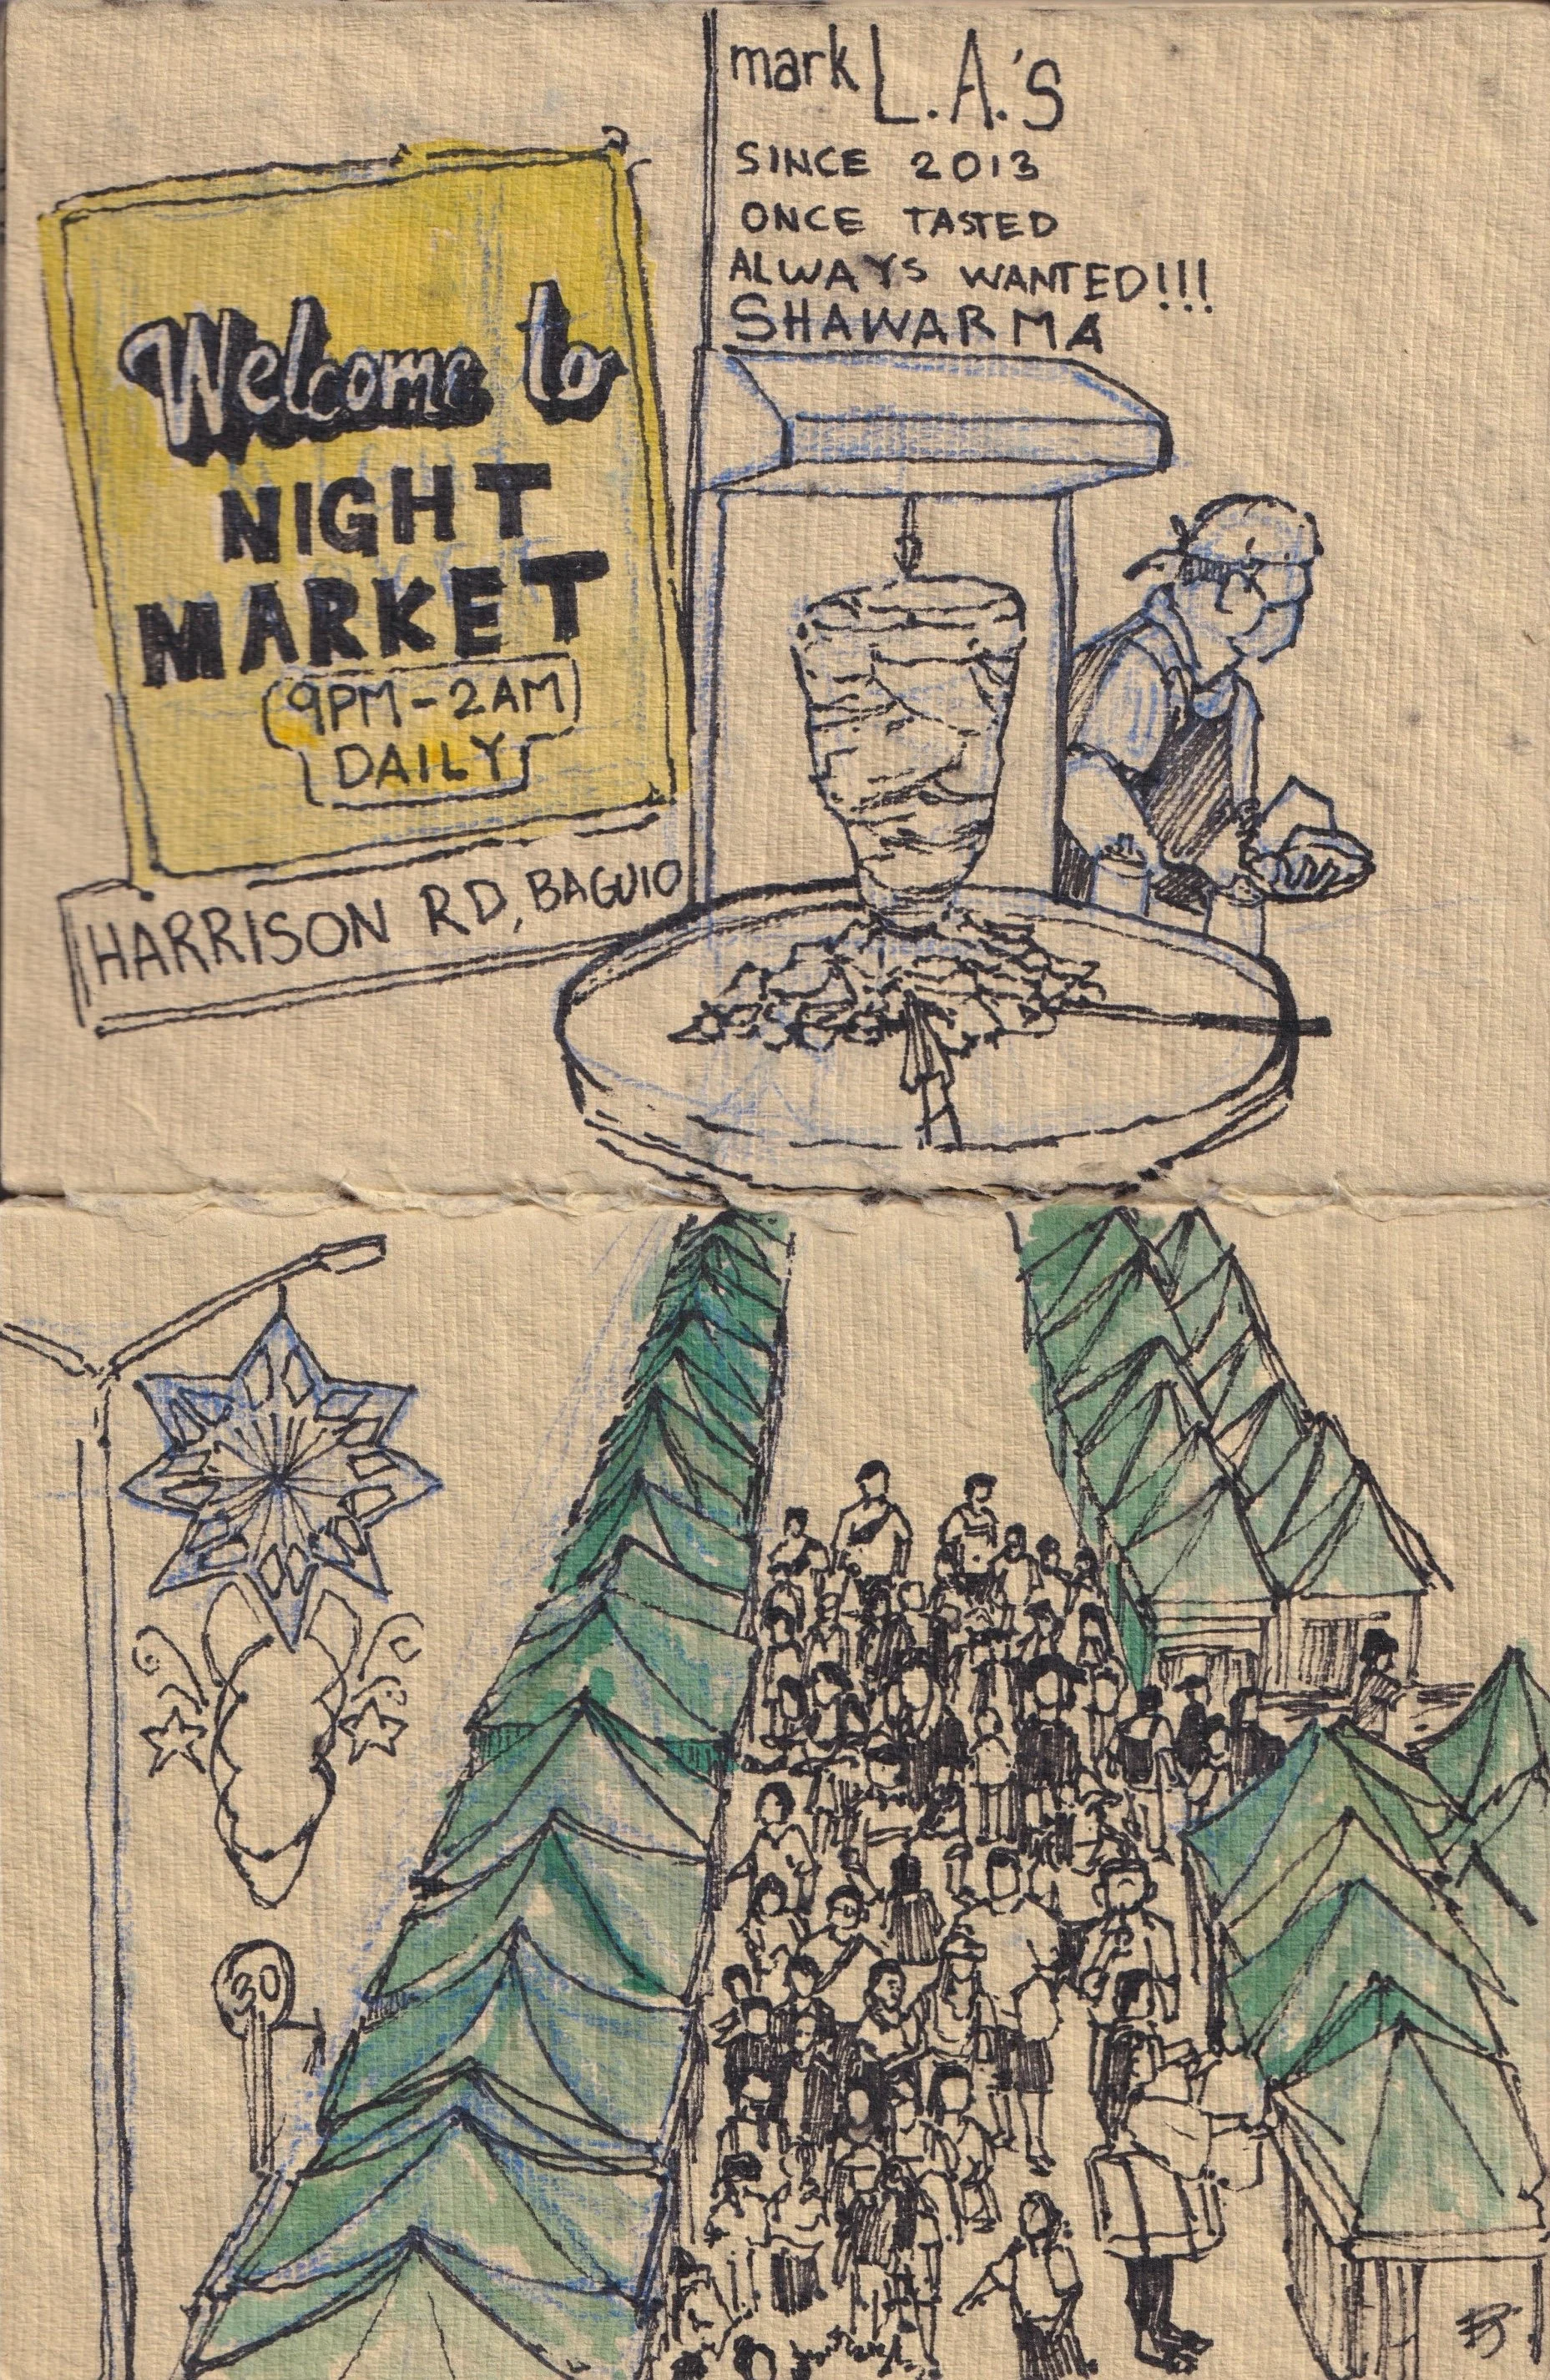 Welcome to
NIGHT
MARKET
9PM-2AM
DAILY
HARRISON RD, BAGUIO
mark L.A.'s
SINCE 2013
ONCE TASTED
ALWAYS WANTED!!!
SHAWARMA
30